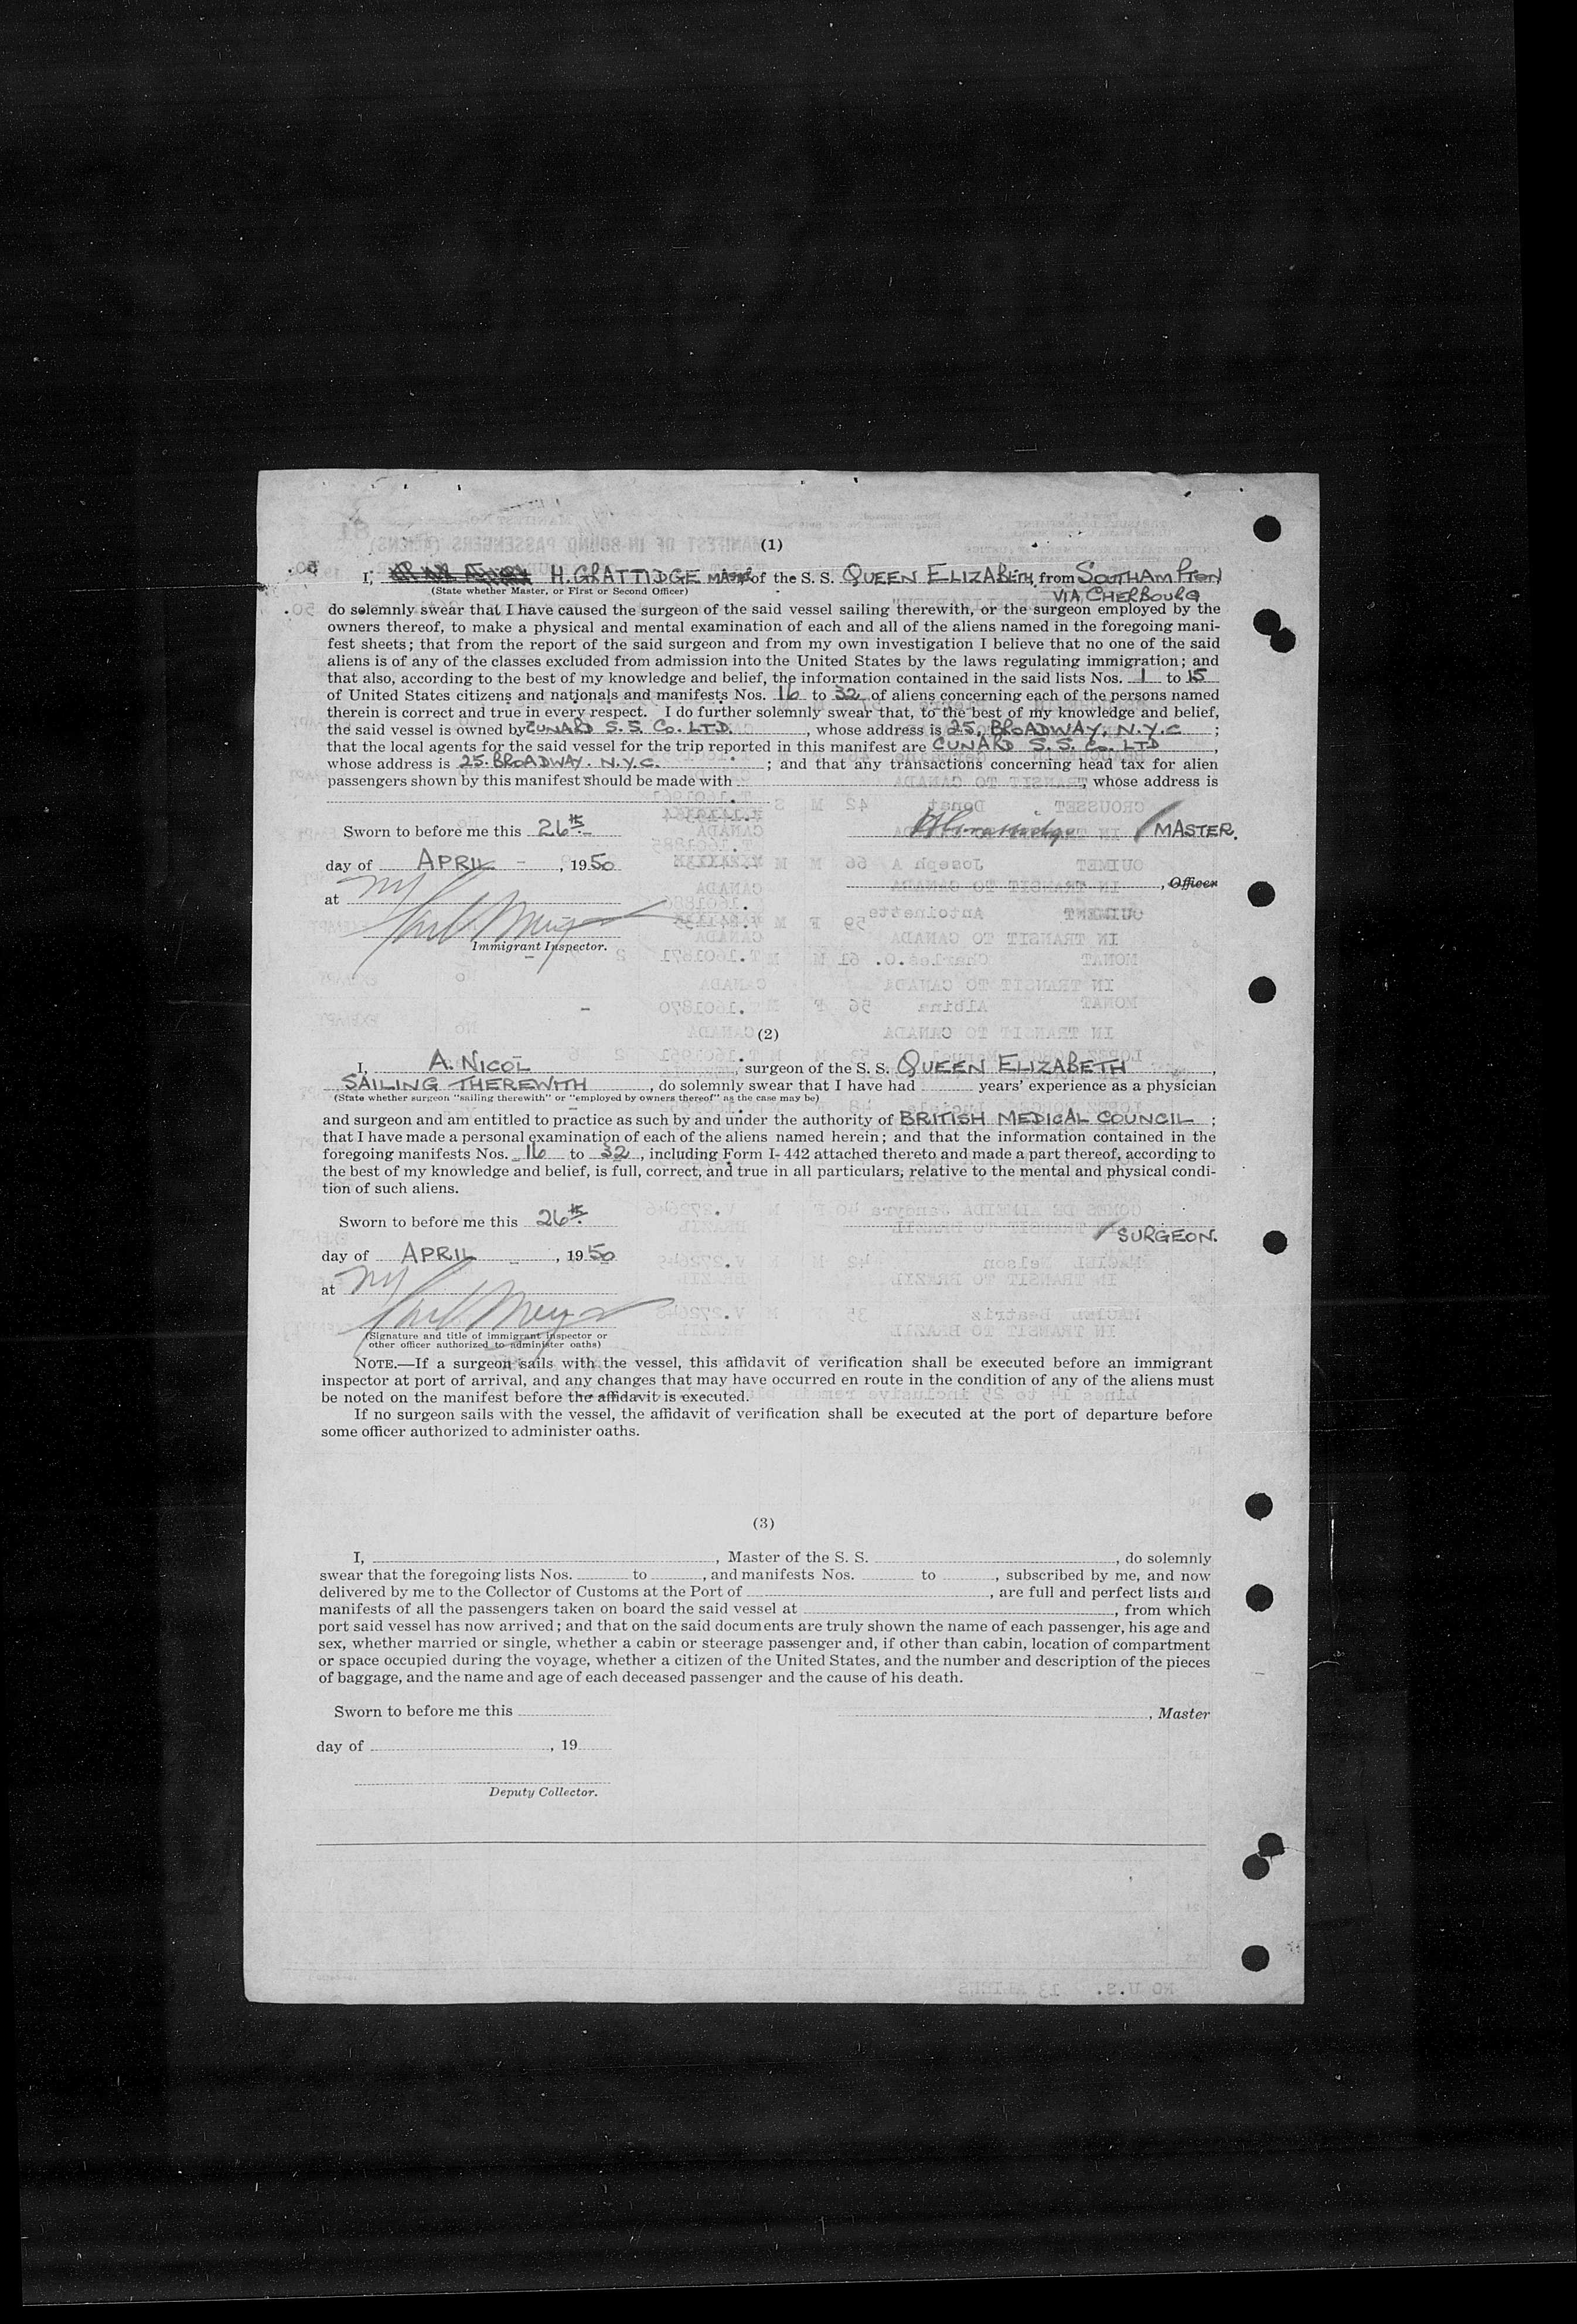 (1)
I, H. GRATTIDGE MASTER of the S. S. QUEEN ELIZABETH, from SOUTHAMPTON
(State whether Master, or First or Second Officer)
VIA CHERBOURG
do solemnly swear that I have caused the surgeon of the said vessel sailing therewith, or the surgeon employed by the
owners thereof, to make a physical and mental examination of each and all of the aliens named in the foregoing mani-
fest sheets; that from the report of the said surgeon and from my own investigation I believe that no one of the said
aliens is of any of the classes excluded from admission into the United States by the laws regulating immigration; and
that also, according to the best of my knowledge and belief, the information contained in the said lists Nos. 1 to 15
of United States citizens and nationals and manifests Nos. 16 to 32 of aliens concerning each of the persons named
therein is correct and true in every respect. I do further solemnly swear that, to the best of my knowledge and belief,
the said vessel is owned by CUNARD S. S. Co. LTD. , whose address is 25, BROADWAY, N.Y.C ;
that the local agents for the said vessel for the trip reported in this manifest are CUNARD S. S. Co. LTD ,
whose address is 25. BROADWAY. N.Y.C. ; and that any transactions concerning head tax for alien
passengers shown by this manifest should be made with , whose address is
Sworn to before me this 26th MASTER.
day of APRIL - , 1950
, Officer
at NY
Immigrant Inspector.
(2)
I, A. NICOL , surgeon of the S. S. QUEEN ELIZABETH ,
SAILING THEREWITH , do solemnly swear that I have had years' experience as a physician
(State whether surgeon "sailing therewith" or "employed by owners thereof" as the case may be)
and surgeon and am entitled to practice as such by and under the authority of BRITISH MEDICAL COUNCIL ;
that I have made a personal examination of each of the aliens named herein; and that the information contained in the
foregoing manifests Nos. 16 to 32 , including Form I-442 attached thereto and made a part thereof, according to
the best of my knowledge and belief, is full, correct, and true in all particulars, relative to the mental and physical condi-
tion of such aliens.
Sworn to before me this 26th
SURGEON.
day of APRIL , 1950
at NY
(Signature and title of immigrant inspector or
other officer authorized to administer oaths)
NOTE.—If a surgeon sails with the vessel, this affidavit of verification shall be executed before an immigrant
inspector at port of arrival, and any changes that may have occurred en route in the condition of any of the aliens must
be noted on the manifest before the affidavit is executed.
If no surgeon sails with the vessel, the affidavit of verification shall be executed at the port of departure before
some officer authorized to administer oaths.
(3)
I, , Master of the S. S. , do solemnly
swear that the foregoing lists Nos. to , and manifests Nos. to , subscribed by me, and now
delivered by me to the Collector of Customs at the Port of , are full and perfect lists and
manifests of all the passengers taken on board the said vessel at , from which
port said vessel has now arrived; and that on the said documents are truly shown the name of each passenger, his age and
sex, whether married or single, whether a cabin or steerage passenger and, if other than cabin, location of compartment
or space occupied during the voyage, whether a citizen of the United States, and the number and description of the pieces
of baggage, and the name and age of each deceased passenger and the cause of his death.
Sworn to before me this , Master
day of , 19
Deputy Collector.